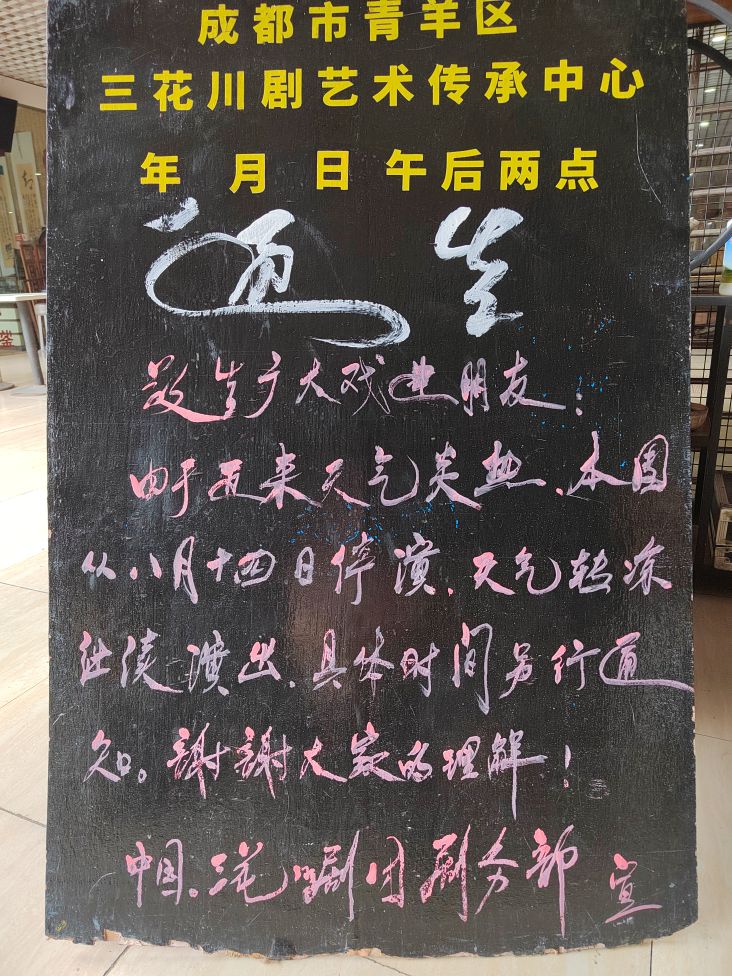 成都市青羊区
三花川剧艺术传承中心
年 月 日 午后两点
通告
敬告广大戏迷朋友：
由于近来天气炎热、本团
从八月十四日停演、天气转凉
继续演出、具体时间另行通
知。謝謝大家的理解！
中国.三花川剧团剧务部 宣